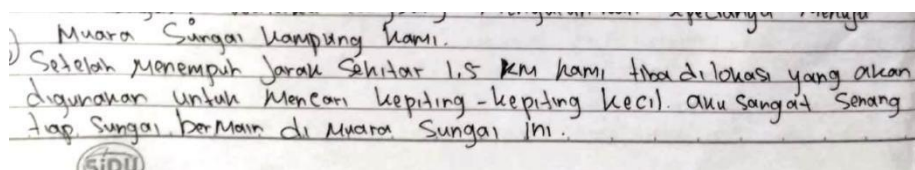 Muara Sungai kampung kami.
Setelah menempuh jarak sekitar 1,5 km kami tiba di lokasi yang akan
digunakan untuk mencari kepiting-kepiting kecil. aku sangat senang
tiap sungai bermain di Muara Sungai ini.
SiDU